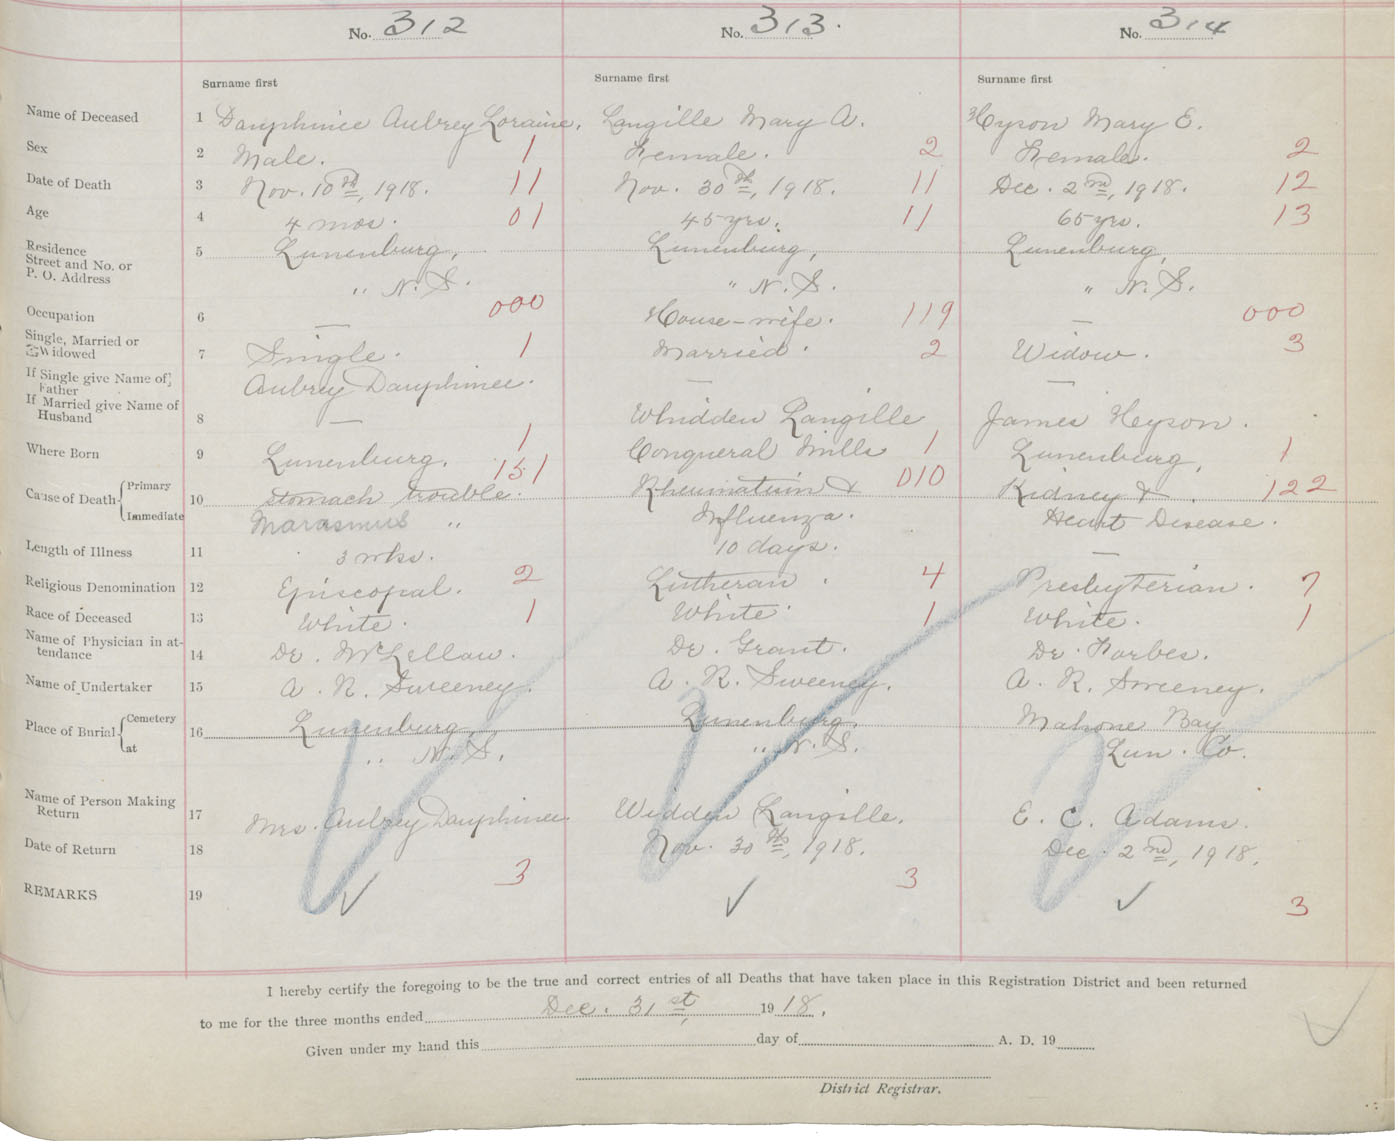 No. 312
No. 313.
No. 314
Surname first
Surname first
Surname first
Name of Deceased 1 Dauphinee Aubrey Loraine. Langille Mary A. Hyson Mary E.
Sex 2 Male. 1 Female. 2 Female. 2
Date of Death 3 Nov. 10th, 1918. 11 Nov. 30th, 1918. 11 Dec. 2nd, 1918. 12
Age 4 4 mos. 01 45 yrs. 11 65 yrs. 13
Residence
Street and No. or
P. O. Address
5 Lunenburg, Lunenburg, Lunenburg,
" N. S. " N. S. " N. S.
Occupation 6 — 000 House-wife. 119 — 000
Single, Married or
Widowed
7 Single. 1 Married. 2 Widow. 3
If Single give Name of
Father
Aubrey Dauphinee. — —
If Married give Name of
Husband
8 — Whidden Langille James Hyson.
Where Born 9 Lunenburg. 1 Conqueral Mills 1 Lunenburg, 1
Cause of Death Primary 10 stomach trouble. 151 Rheumatism & 010 Kidney & 122
Immediate Marasmus " Influenza. Heart Disease.
Length of Illness 11 3 wks. 10 days. —
Religious Denomination 12 Episcopal. 2 Lutheran. 4 Presbyterian. 7
Race of Deceased 13 White. 1 White. 1 White. 1
Name of Physician in at-
tendance
14 Dr. McLellan. Dr. Grant. Dr. Forbes.
Name of Undertaker 15 A. R. Sweeney. A. R. Sweeney. A. R. Sweeney.
Place of Burial Cemetery 16 Lunenburg, Lunenburg, Mahone Bay
at " N. S. " N. S. Lun. Co.
Name of Person Making
Return
17 Mrs. Aubrey Dauphinee. Widden Langille. E. C. Adams.
Date of Return 18 Nov. 30th, 1918. Dec. 2nd, 1918.
REMARKS 19 3 3 3
I hereby certify the foregoing to be the true and correct entries of all Deaths that have taken place in this Registration District and been returned
to me for the three months ended Dec. 31st, 1918.
Given under my hand this day of A. D. 19
District Registrar.